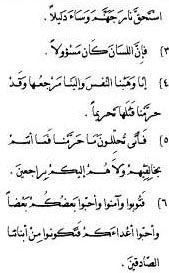 استحق نار جهنم وساء دليلاً.
٣) فإن اللسان كان مسؤولاً.
٤) إنا وهبنا النفس وإلينا مرجعها وقد
حرمنا قتلها تحريماً.
٥) فأنى تحللون ما حرمنا فما أنتم
بخالقيهم ولا هم إليكم براجعين.
٦) فتوبوا وآمنوا وأحبوا بعضكم بعضاً
وأحبوا أعداءكم فتكونوا من أبنائنا
الصادقين.